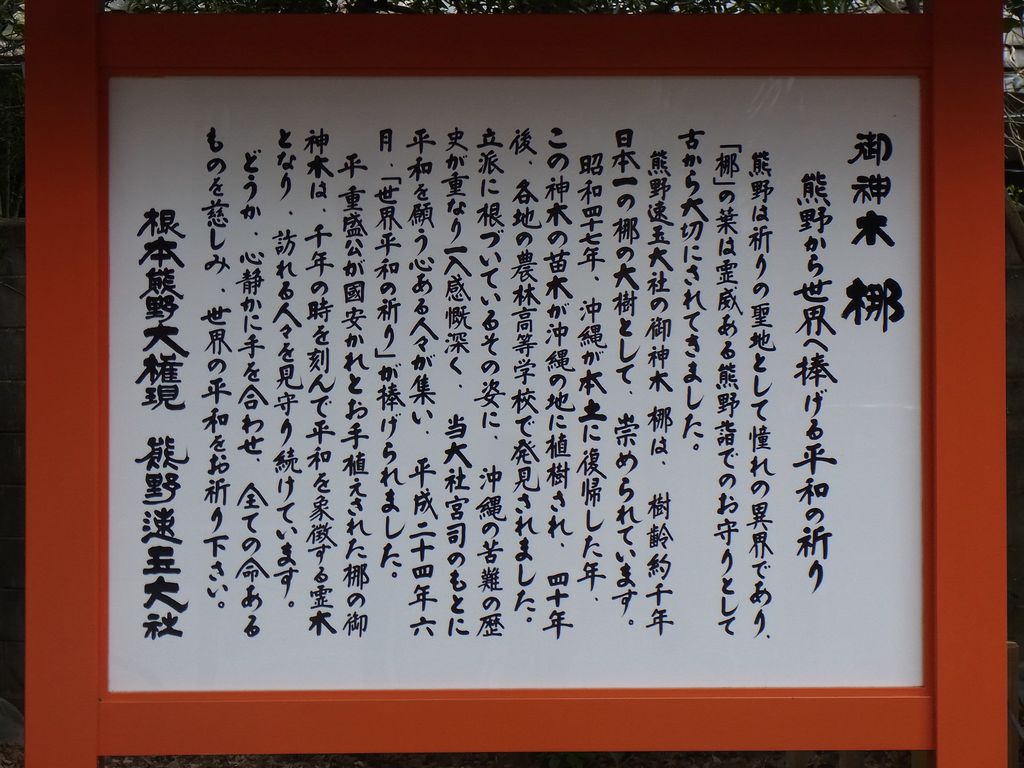 御神木 梛
熊野から世界へ捧げる平和の祈り
熊野は祈りの聖地として憧れの異界であり、
「梛」の葉は霊威ある熊野詣でのお守りとして
古から大切にされてきました。
熊野速玉大社の御神木 梛は、樹齢約千年
日本一の梛の大樹として、崇められています。
昭和四十七年、沖縄が本土に復帰した年、
この神木の苗木が沖縄の地に植樹され、四十年
後、各地の農林高等学校で発見されました。
立派に根づいているその姿に、沖縄の苦難の歴
史が重なり一入感慨深く、当大社宮司のもとに
平和を願う心ある人々が集い、平成二十四年六
月、「世界平和の祈り」が捧げられました。
平 重盛公が國安かれとお手植えされた梛の御
神木は、千年の時を刻んで平和を象徴する霊木
となり、訪れる人々を見守り続けています。
どうか、心静かに手を合わせ、全ての命ある
ものを慈しみ、世界の平和をお祈り下さい。
根本熊野大権現 熊野速玉大社